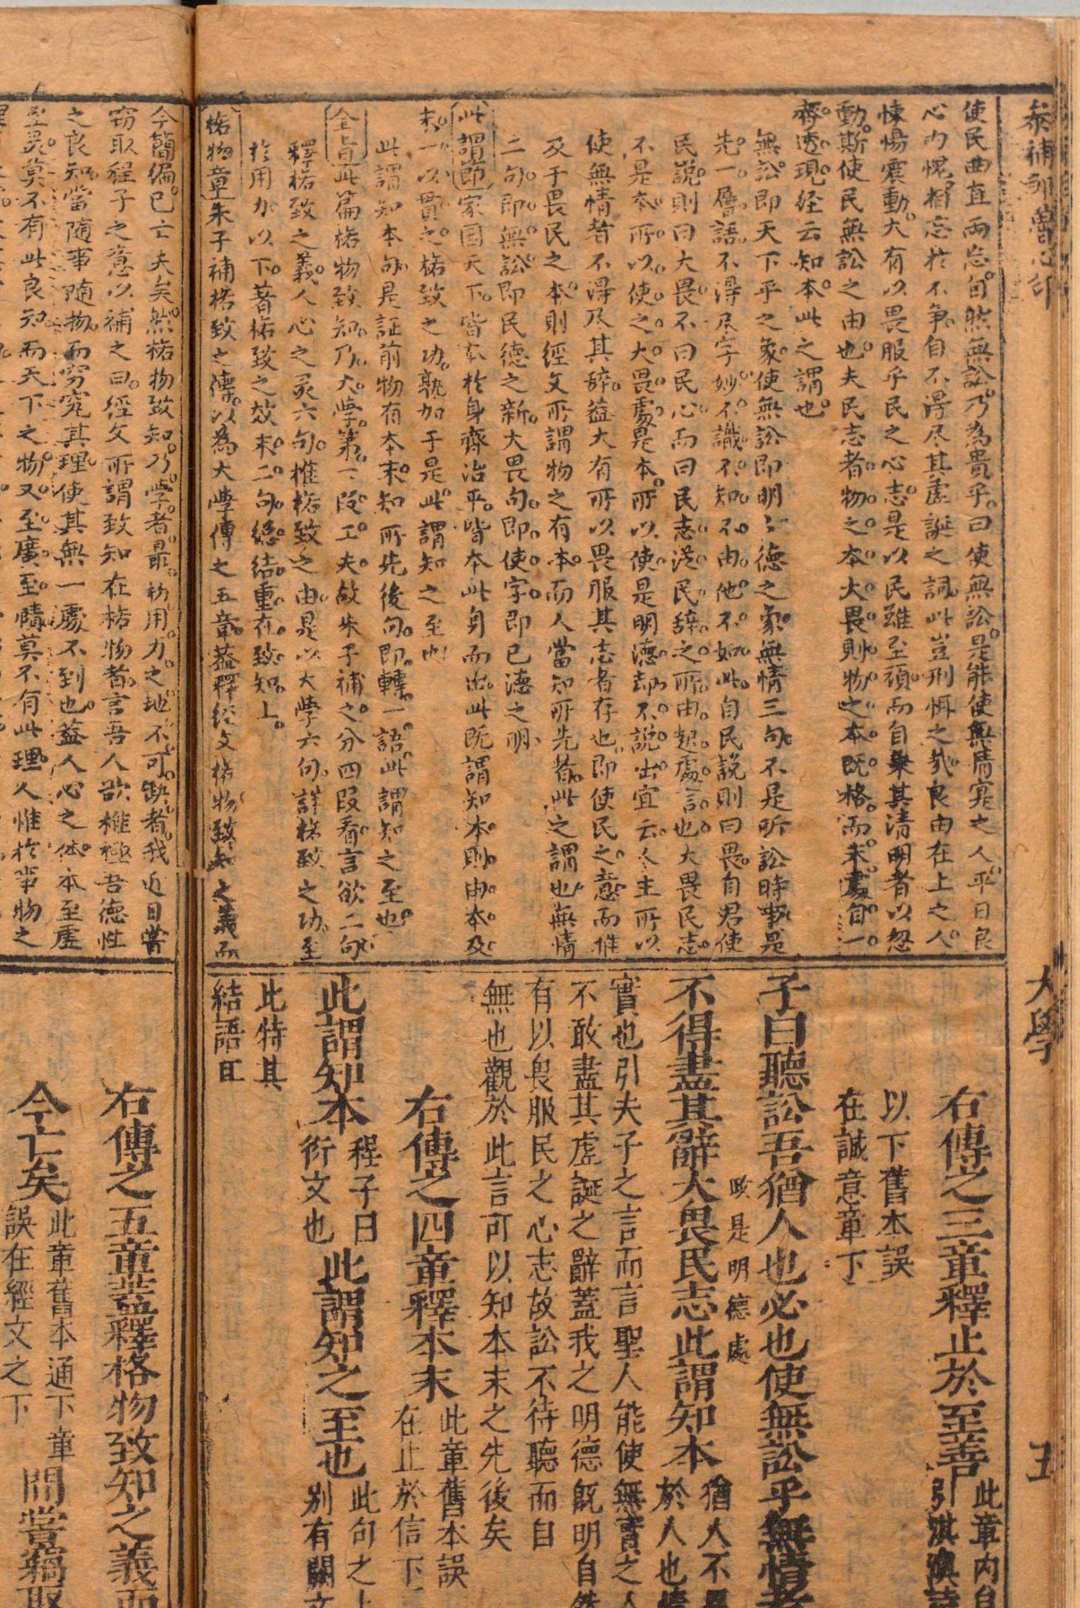 大學
五
使民曲直兩忘自然無訟乃為貴乎曰使無訟是能使無情寔之人平日良
心內愧相忘於不爭自不得尽其虛誕之詞此豈刑恦之哉良由在上之人
悚惕震動大有以畏服乎民之心志是以民雖至頑而自棄其清明者以忽
動斯使民無訟之由也夫民志者物之本大畏則物之本既格而末處自一
齊透現經云知本此之謂也
無訟即天下平之象使無訟即明明德之象無情三句不是听訟時事是
先一層語不淂尽字妙不識不知不由他不如此自民說則曰畏自君使
民說則曰大畏不曰民心而曰民志是民辞之所由起處言也大畏民志
不是本所以使之大畏處是本所以使是明德却不說出宜云人主所以
使無情者不淂及其辞蓋大有所以畏服其志者存也即使民之意而惟
及于畏民之本則經文所謂物之有本而人當知所先者此之謂也無情
二句即無訟即民德之新大畏句即使字即已德之明
此謂即家国天下皆本於身齊治平皆本此身而出此既謂知本則由本及
末一以貫之格致之功孰加于是此謂知之至也
此謂知本句是証前物有本末知所先後句即轉一語此謂知之至也
全旨此篇格物致知乃大學第一段工夫故朱子補之分四段看言欲二句
釋格致之義人心之灵六句惟格致之由是以大學六句詳格致之功至
於用力以下著格致之效末二句總結重在致知上
格物章朱子補格致之傳以為大學傳之五章蓋釋經文格物致知之義而
今簡偏已亡夫矣然格物致知乃學者最初用力之地不可缺者我近日嘗
窃取程子之意以補之曰經文所謂致知在格物者言吾人欲推極吾德性
之良知當隨事隨物而窮究其理使其無一處不到也蓋人心之体本至虛
至灵莫不有此良知而天下之物又至廣至賾莫不有此理人惟於事物之
右傳之三章釋止於至善
此章內自
引淇澳詩
以下舊本誤
在誠意章下
子曰聽訟吾猶人也必也使無訟乎無情者
不得盡其辭大畏民志此謂知本
畏是明德處
猶人不異
於人也情
實也引夫子之言而言聖人能使無實之人
不敢盡其虛誕之辭蓋我之明德旣明自然
有以畏服民之心志故訟不待聽而自
無也觀於此言可以知本末之先後矣
右傳之四章釋本末
此章舊本誤
在止於信下
此謂知本
程子曰
衍文也
此謂知之至也
此句之上
别有闕文
此特其
結語耳
右傳之五章蓋釋格物致知之義而
今亡矣
此章舊本通下章
誤在經文之下
間嘗竊取